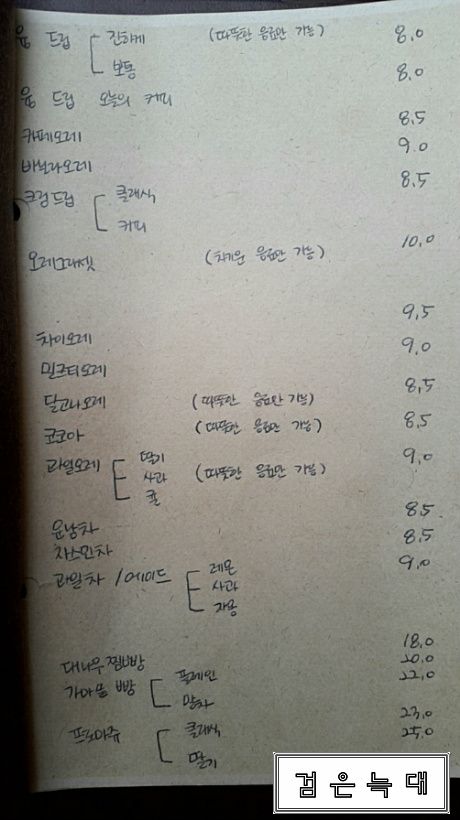 융 드립 진하게 (따뜻한 음료만 가능) 8.0
보통 8.0
융 드립 오늘의 커피
카페오레 8.5
바닐라오레 9.0
크림드립 클래식 8.5
커피
오레그라쎗 (차가운 음료만 가능) 10.0
차이오레 9.5
밀크티오레 9.0
달고나오레 (따뜻한 음료만 가능) 8.5
코코아 (따뜻한 음료만 가능) 8.5
과일오레 딸기 (따뜻한 음료만 가능) 9.0
사과
귤
운남차 8.5
자스민차 8.5
과일차 / 에이드 레몬 9.0
사과
자몽
대나무찜빵 18.0
가마솥빵 플레인 20.0
말차 22.0
프로마쥬 클래식 23.0
딸기 25.0
검은늑대